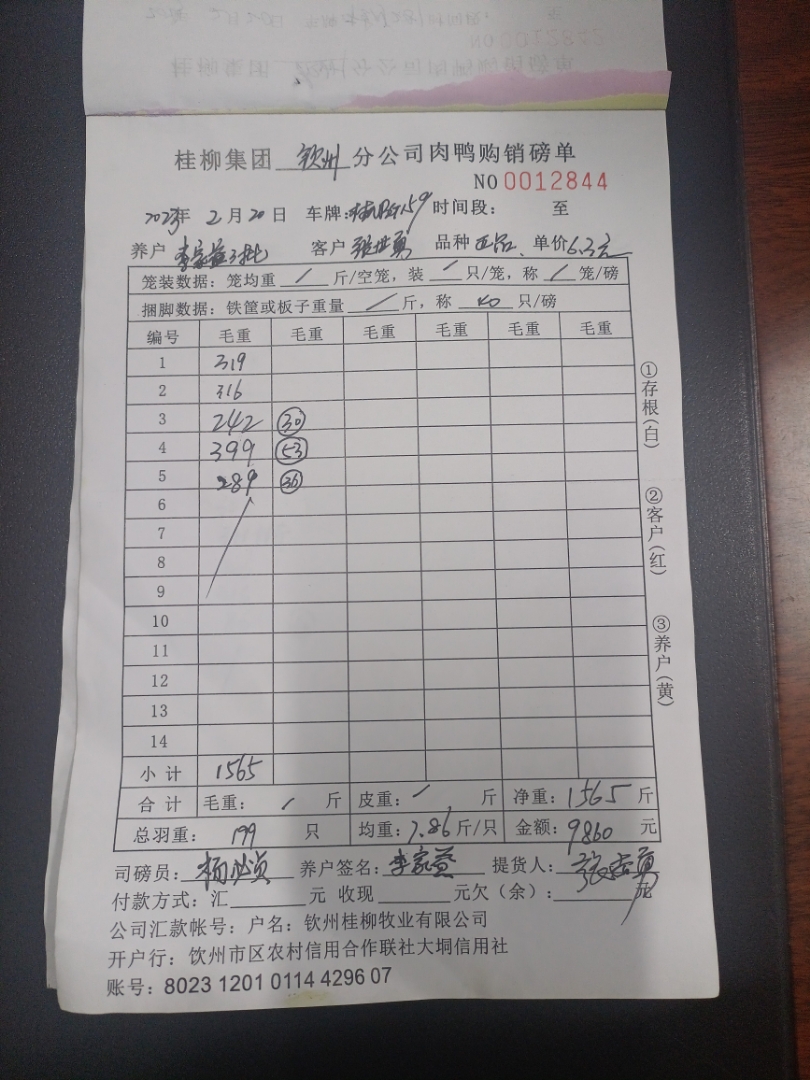 桂柳集团 钦州 分公司肉鸭购销磅单
NO 0012844
2023年 2月 20日 车牌: 59 时间段: 至
养户 李家益 客户 张世勇 品种 正品 单价 6.3元
笼装数据: 笼均重 / 斤/空笼, 装 / 只/笼, 称 / 笼/磅
捆脚数据: 铁筐或板子重量 / 斤, 称 40 只/磅
编号 毛重 毛重 毛重 毛重 毛重
1 319
2 316
3 242 30
4 399 53
5 289 36
6
7
8
9
10
11
12
13
14
小计 1565
合计 毛重: / 斤 皮重: / 斤 净重: 1565 斤
总羽重: 199 只 均重: 7.86 斤/只 金额: 9860 元
司磅员: 杨 养户签名: 李家益 提货人: 张世勇
付款方式: 汇 元 收现 元欠(余): 元
公司汇款帐号: 户名: 钦州桂柳牧业有限公司
开户行: 钦州市区农村信用合作联社大垌信用社
账号: 8023 1201 0114 4296 07
①存根(白)
②客户(红)
③养户(黄)